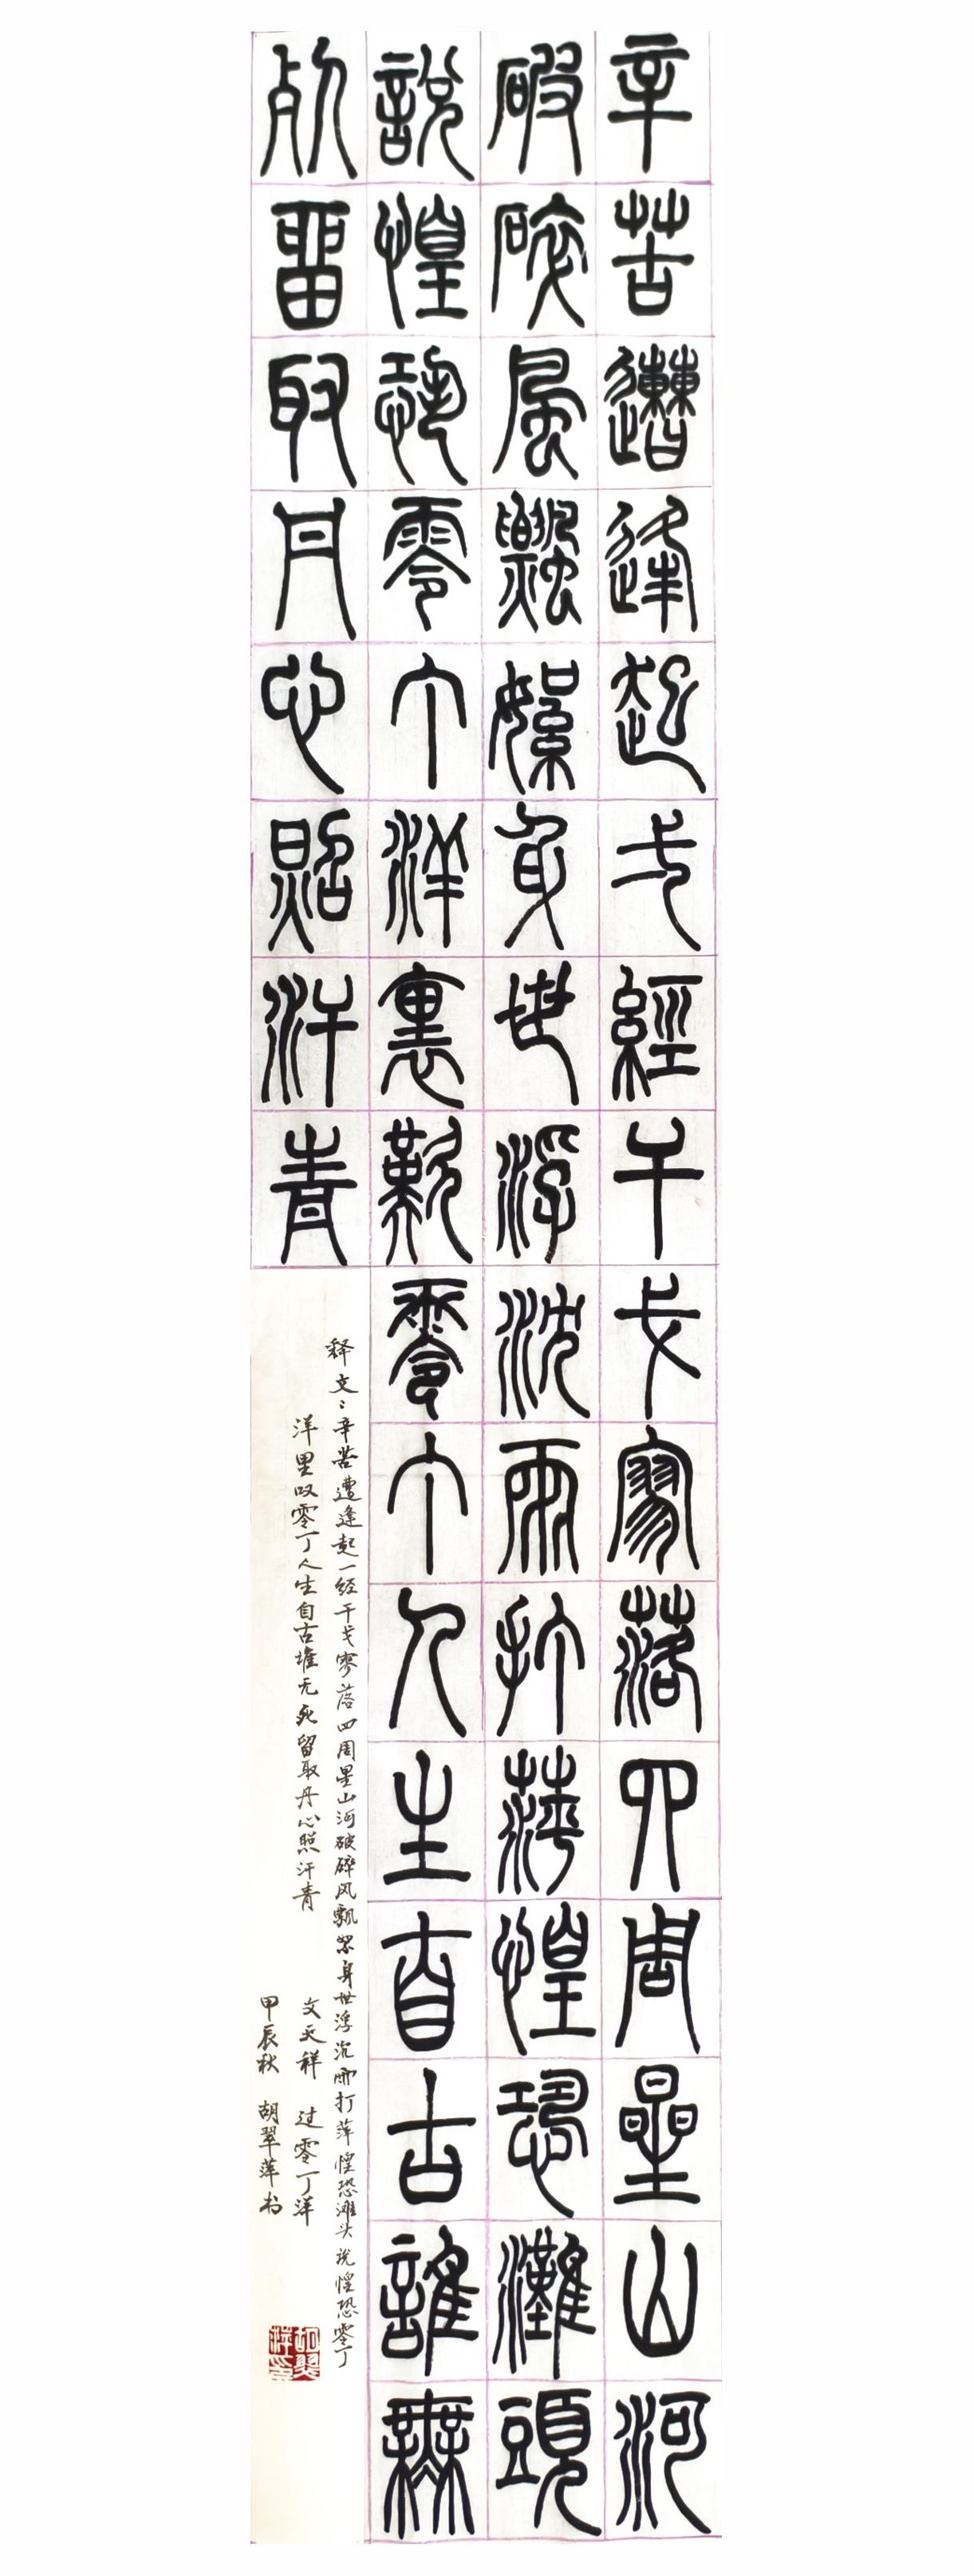 辛苦遭逢起弌經干戈寥落四周星山河
破碎風飄絮身世浮沈雨打萍惶恐灘頭
說惶恐零丁洋裏歎零丁人生自古誰無
死留取丹心照汗青
释文:辛苦遭逢起一经干戈寥落四周星山河破碎风飘絮身世浮沉雨打萍惶恐滩头说惶恐零丁
洋里叹零丁人生自古谁无死留取丹心照汗青 文天祥 过零丁洋
甲辰秋 胡翠萍书
胡翠萍印